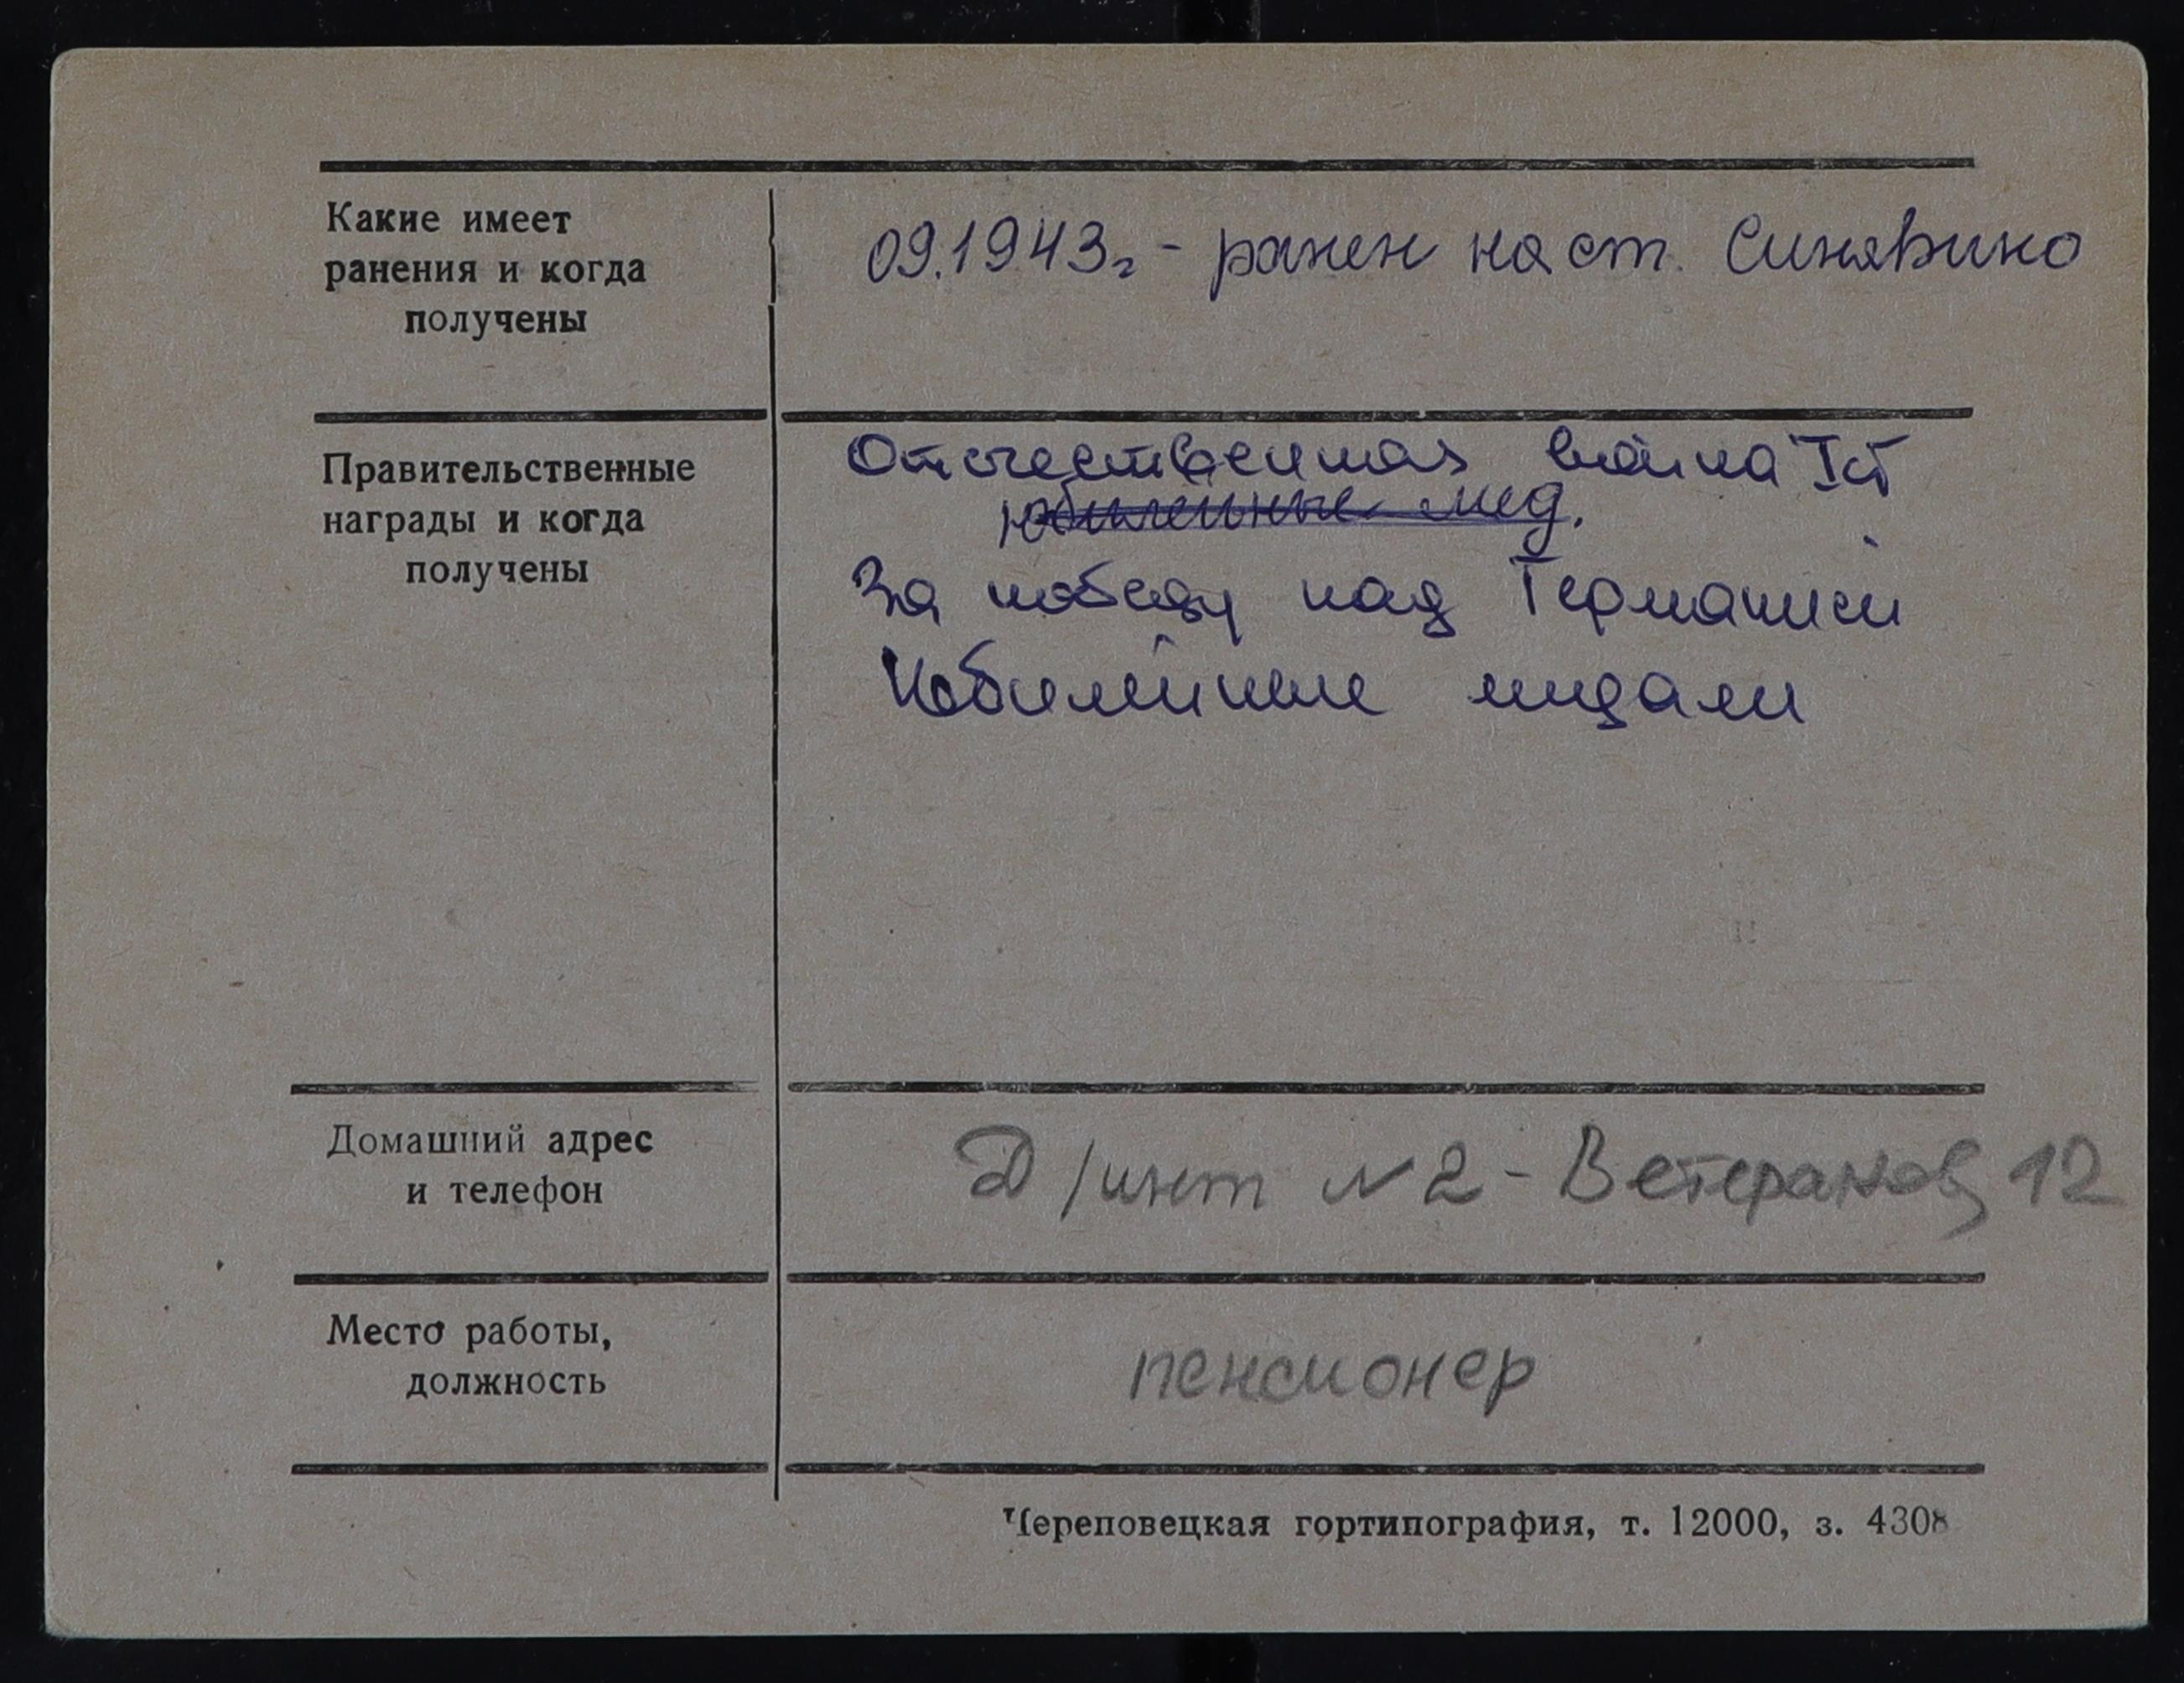 Какие имеет
ранения и когда
получены
09.1943г - ранен на ст. Синявино
Правительственные
награды и когда
получены
Отечественная война I ст
юбилейные мед.
За победу над Германией
Юбилейные медали
Домашний адрес
и телефон
Д/инт N 2 - Ветеранов 12
Место работы,
должность
пенсионер
Череповецкая гортипография, т. 12000, з. 4308